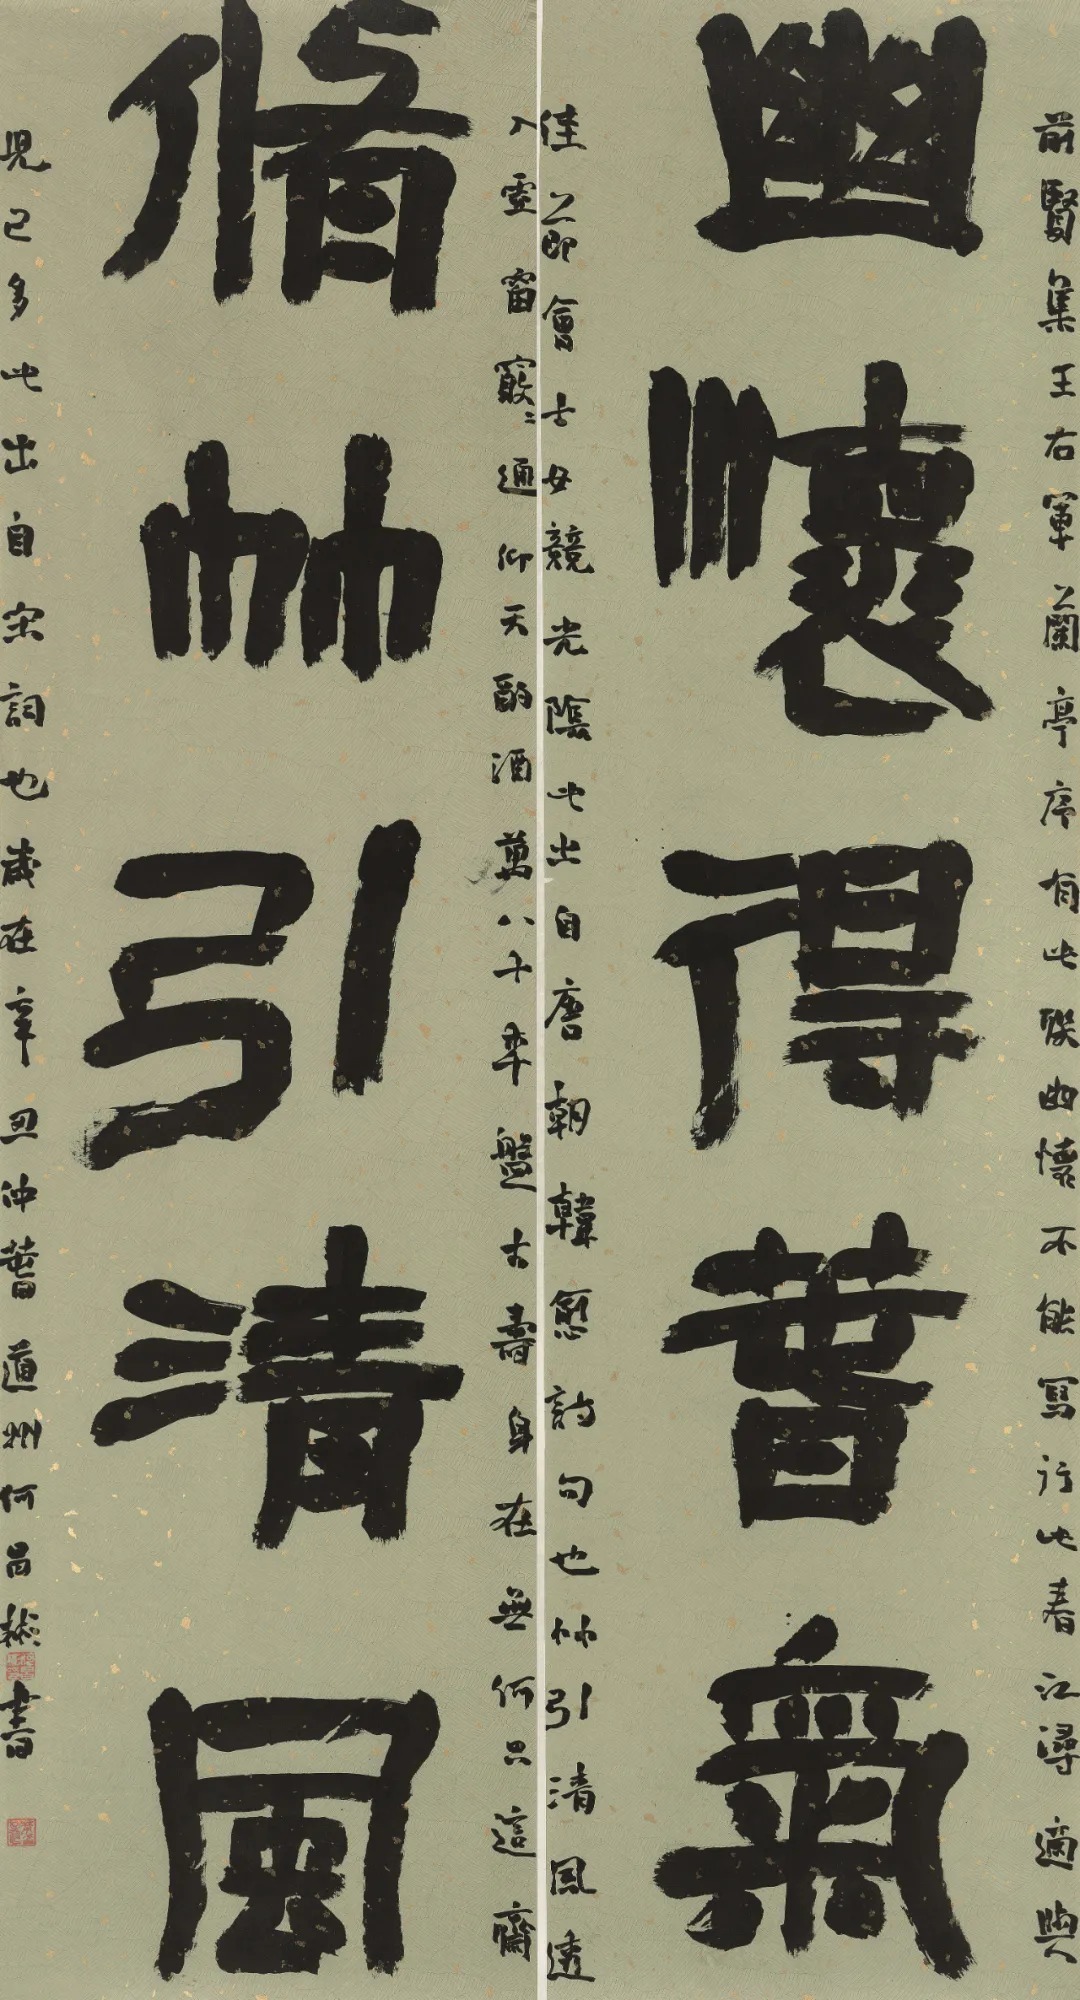 幽懷得春氣
前賢集王右軍蘭亭序有此聯幽懷不能寫行此春江潯適與
佳節會士女競光陰此出自唐朝韓愈詩句也竹引清風透
脩竹引清風
入靈窗竅竅通仰天酌酒萬八千年盤古壽身在無何只這齋
兒已多此出自宋詞也歲在辛丑仲春道州何昌書